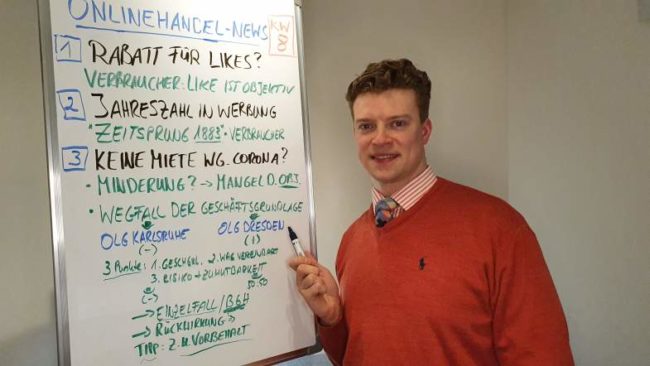 ONLINEHANDEL-NEWS
KW 8
1 RABATT FÜR LIKES?
VERBRAUCHER: LIKE IST OBJEKTIV
2 JAHRESZAHL IN WERBUNG
"ZEITSPRUNG 1883" - VERBRAUCHER
3 KEINE MIETE WG. CORONA?
• MINDERUNG? → MANGEL D. OBJ.
• WEGFALL DER GESCHÄFTSGRUNDLAGE
OLG KARLSRUHE OLG DRESDEN
(-) (1)
3 Punkte: 1. GESCHGL. 2. WAS VEREINBART
3. RISIKO + ZUMUTBARKEIT
(-) 50:50
→ EINZELFALL/BGH
→ RÜCKWIRKUNG
TIPP: Z.U. VORBEHALT